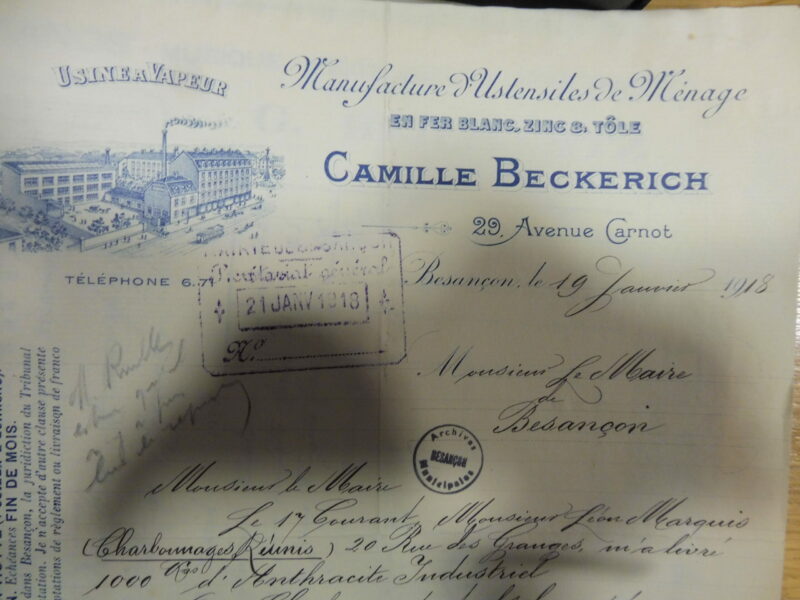 USINE A VAPEUR
Manufacture d'Ustensiles de Ménage
EN FER BLANC, ZINC & TÔLE
CAMILLE BECKERICH
29, Avenue Carnot
TÉLÉPHONE 6.71
MAIRIE DE BESANÇON
Secrétariat général
21 JANV 1918
N.º
Besançon, le 19 Janvier 1918
Monsieur Le Maire
de
Besançon
Archives
BESANÇON
Municipales
Monsieur le Maire
Le 17 Courant, Monsieur Léon Marquis
(Charbonnages Réunis) 20 Rue des Granges, m'a livré
1000 Kgs d'Anthracite Industriel
Echéances FIN DE MOIS.
dans Besançon, la juridiction du Tribunal
Je n'accepte d'autre clause présente
de règlement ou livraison de franco